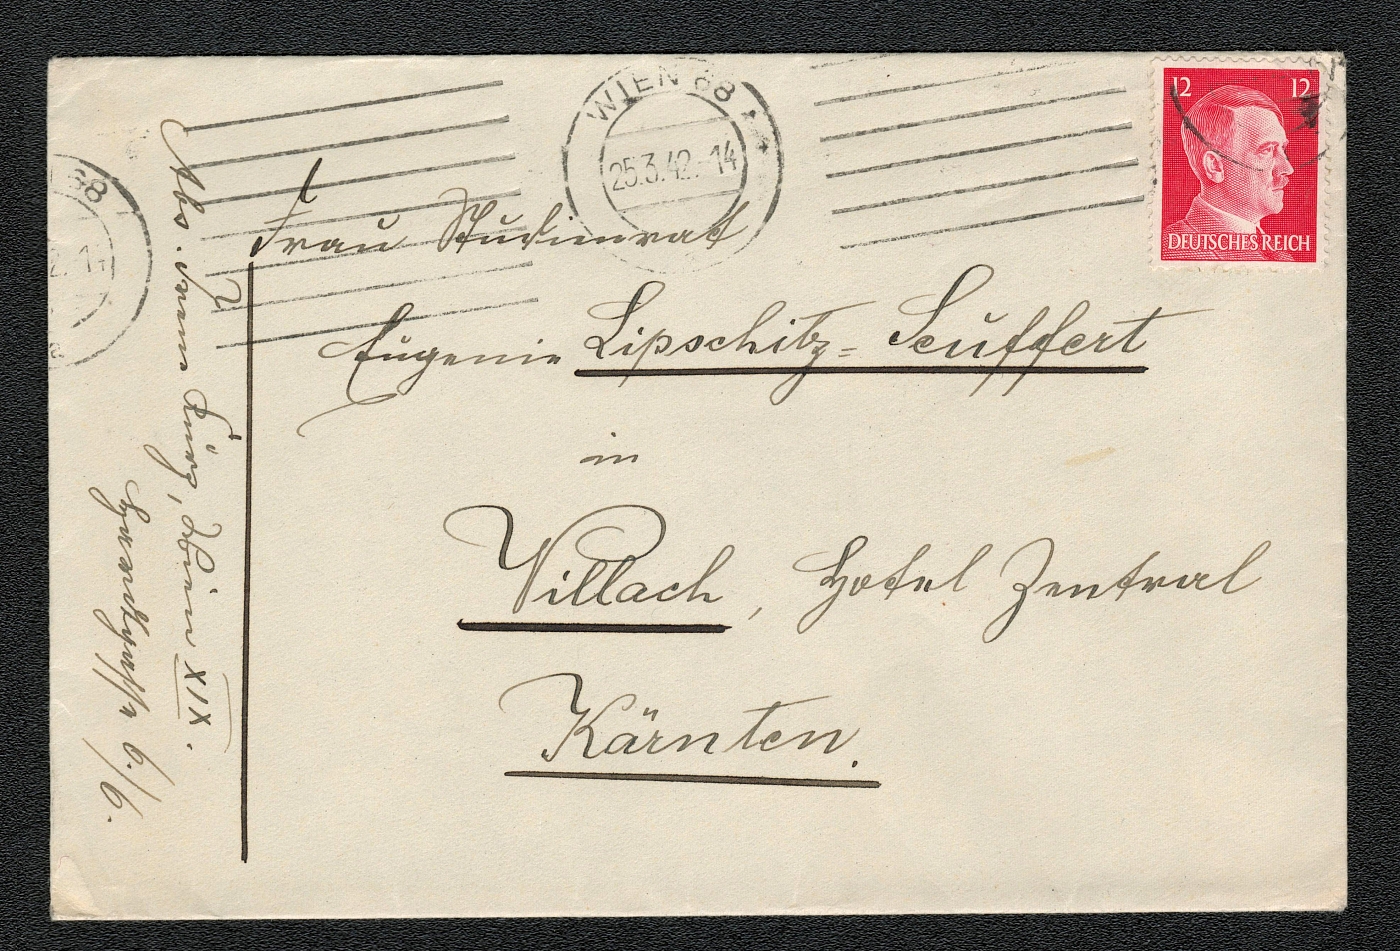 WIEN 68
25.3.42.-14
68
2.-14
12 12
DEUTSCHES REICH
Frau Studienrat
Eugenie Lipschitz=Seuffert
in
Villach, Hotel Zentral
Kärnten.
Abs. Wien XIX.
6./6.